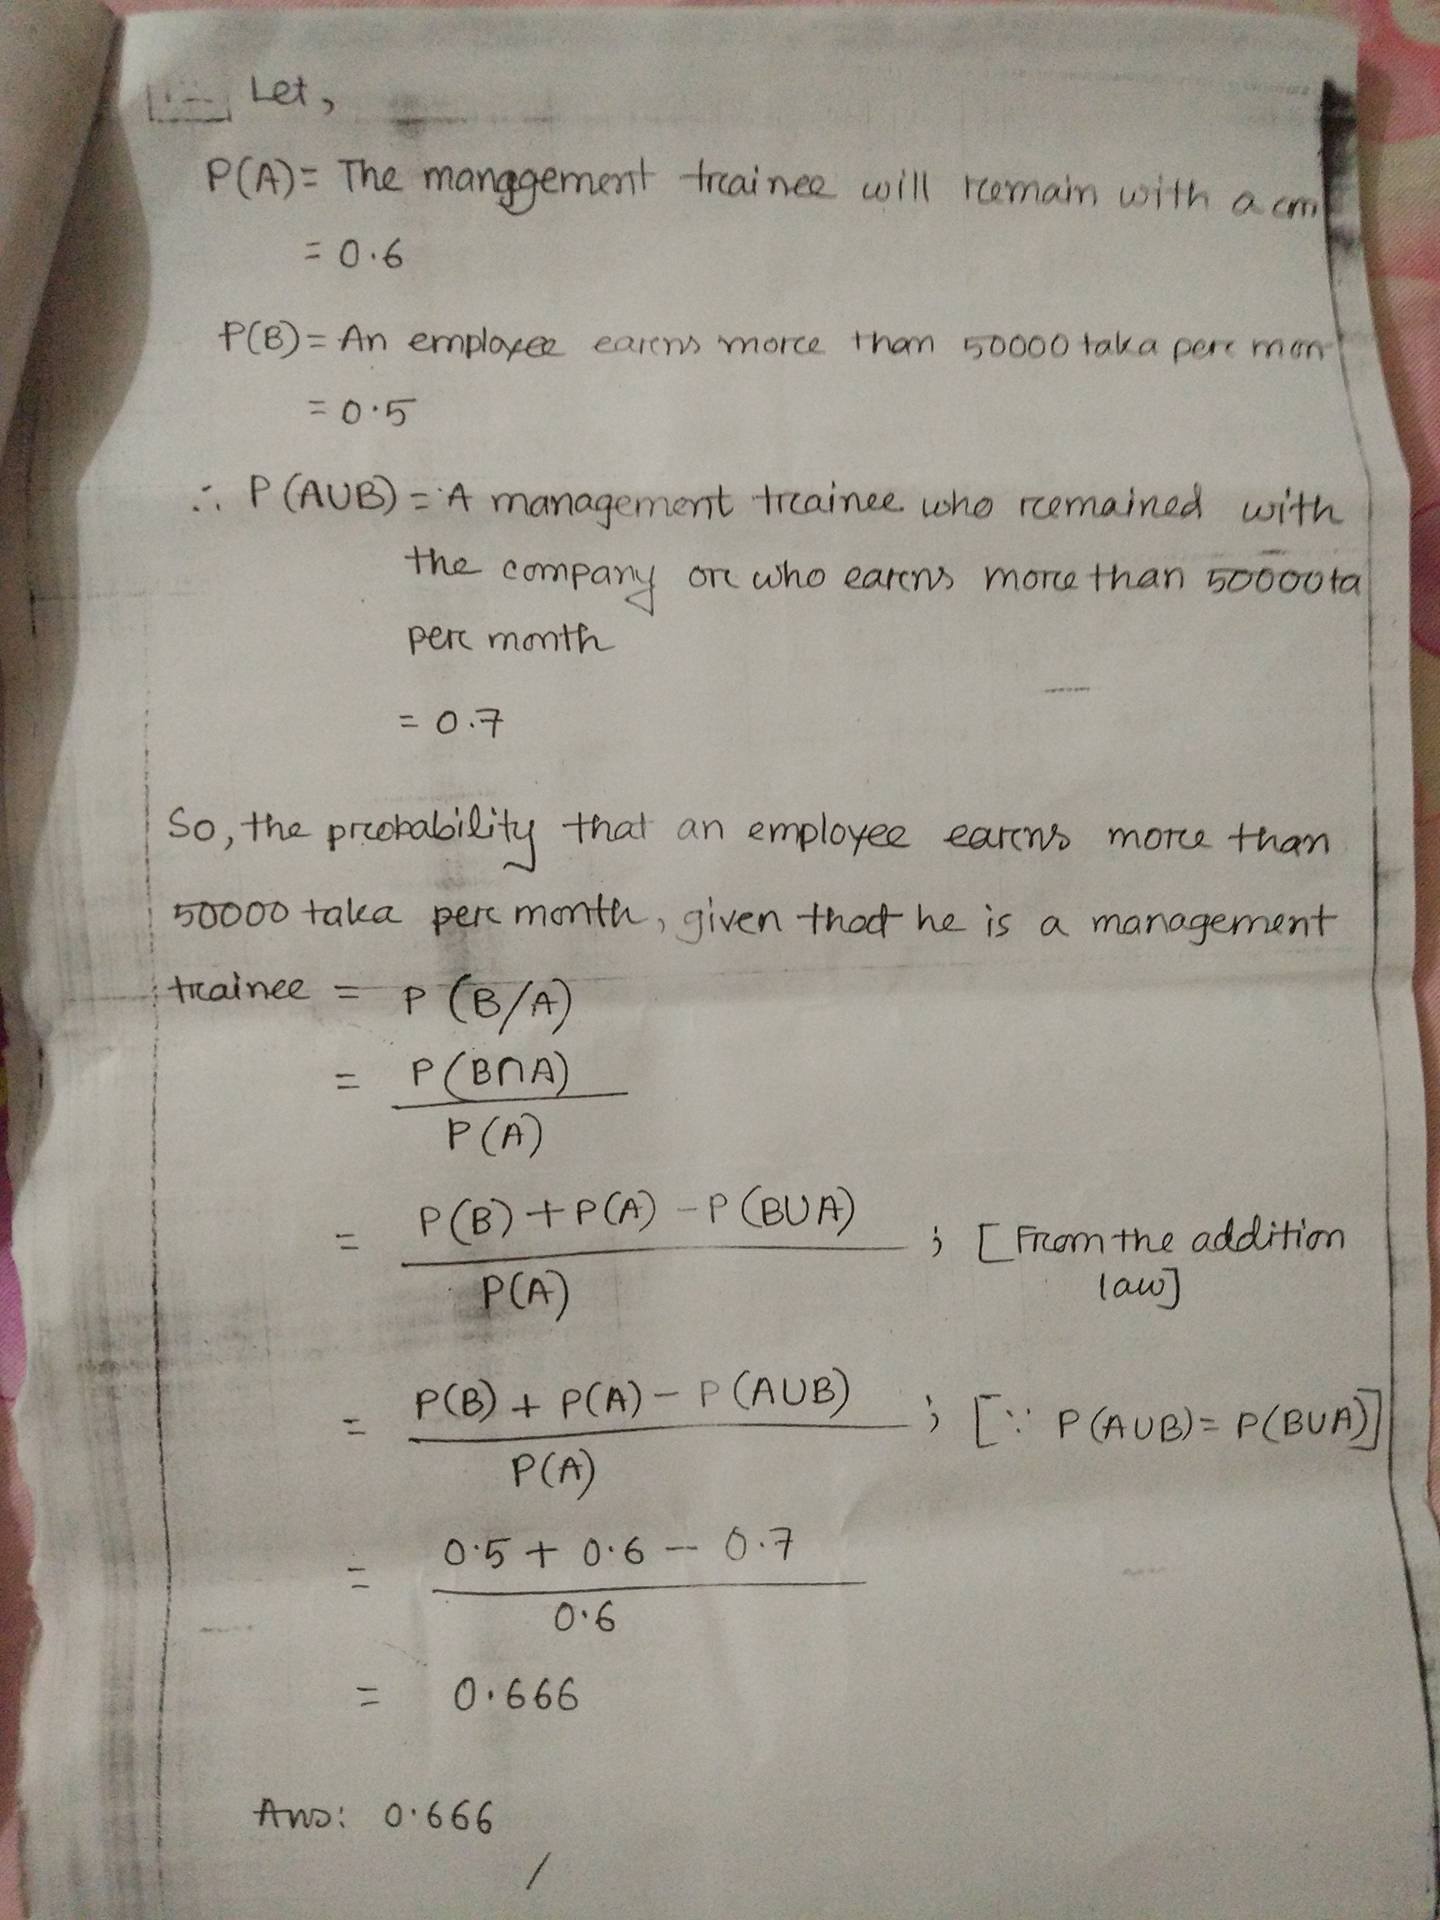 Let,
P(A) = The management trainee will remain with a com
= 0.6
P(B) = An employee earns more than 50000 taka per mon
= 0.5
∴ P(AUB) = A management trainee who remained with
the company or who earns more than 50000 ta
per month
= 0.7
So, the probability that an employee earns more than
50000 taka per month, given that he is a management
trainee = P(B/A)
= P(B∩A)
P(A)
= P(B) + P(A) - P(BUA) ; [From the addition
P(A) law]
= P(B) + P(A) - P(AUB) ; [∵ P(AUB) = P(BUA)]
P(A)
= 0.5 + 0.6 - 0.7
0.6
= 0.666
Ans: 0.666